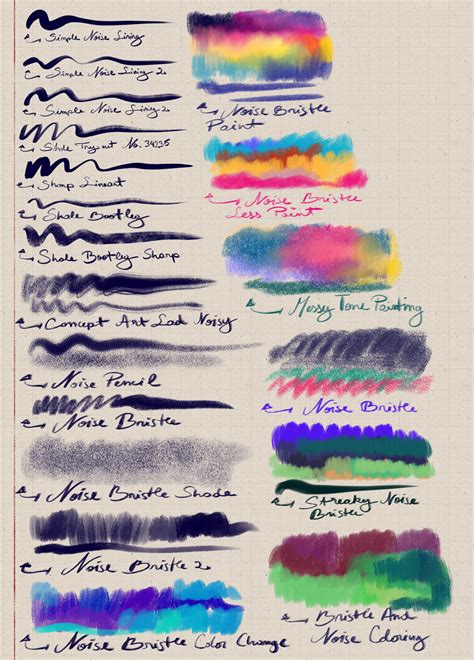 Simple Noise Lining
Simple Noise Lining 2
Simple Noise Lining 2
Shde Try out No. 34035
Sharp Lineart
Shde Bootley
Shde Bootley Sharp
Concept Art Lad Noisy
Noise Pencil
Noise Bristle
Noise Bristle Shade
Noise Bristle 2
Noise Bristle Color Change
Noise Bristle
Paint
Noise Bristle
Less Paint
Messy Tone Painting
Noise Bristle
Streaky Noise
Bristle
Bristle And
Noise Coloring